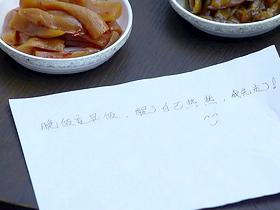 晚饭变早饭，醒了自己热热，我先走了！